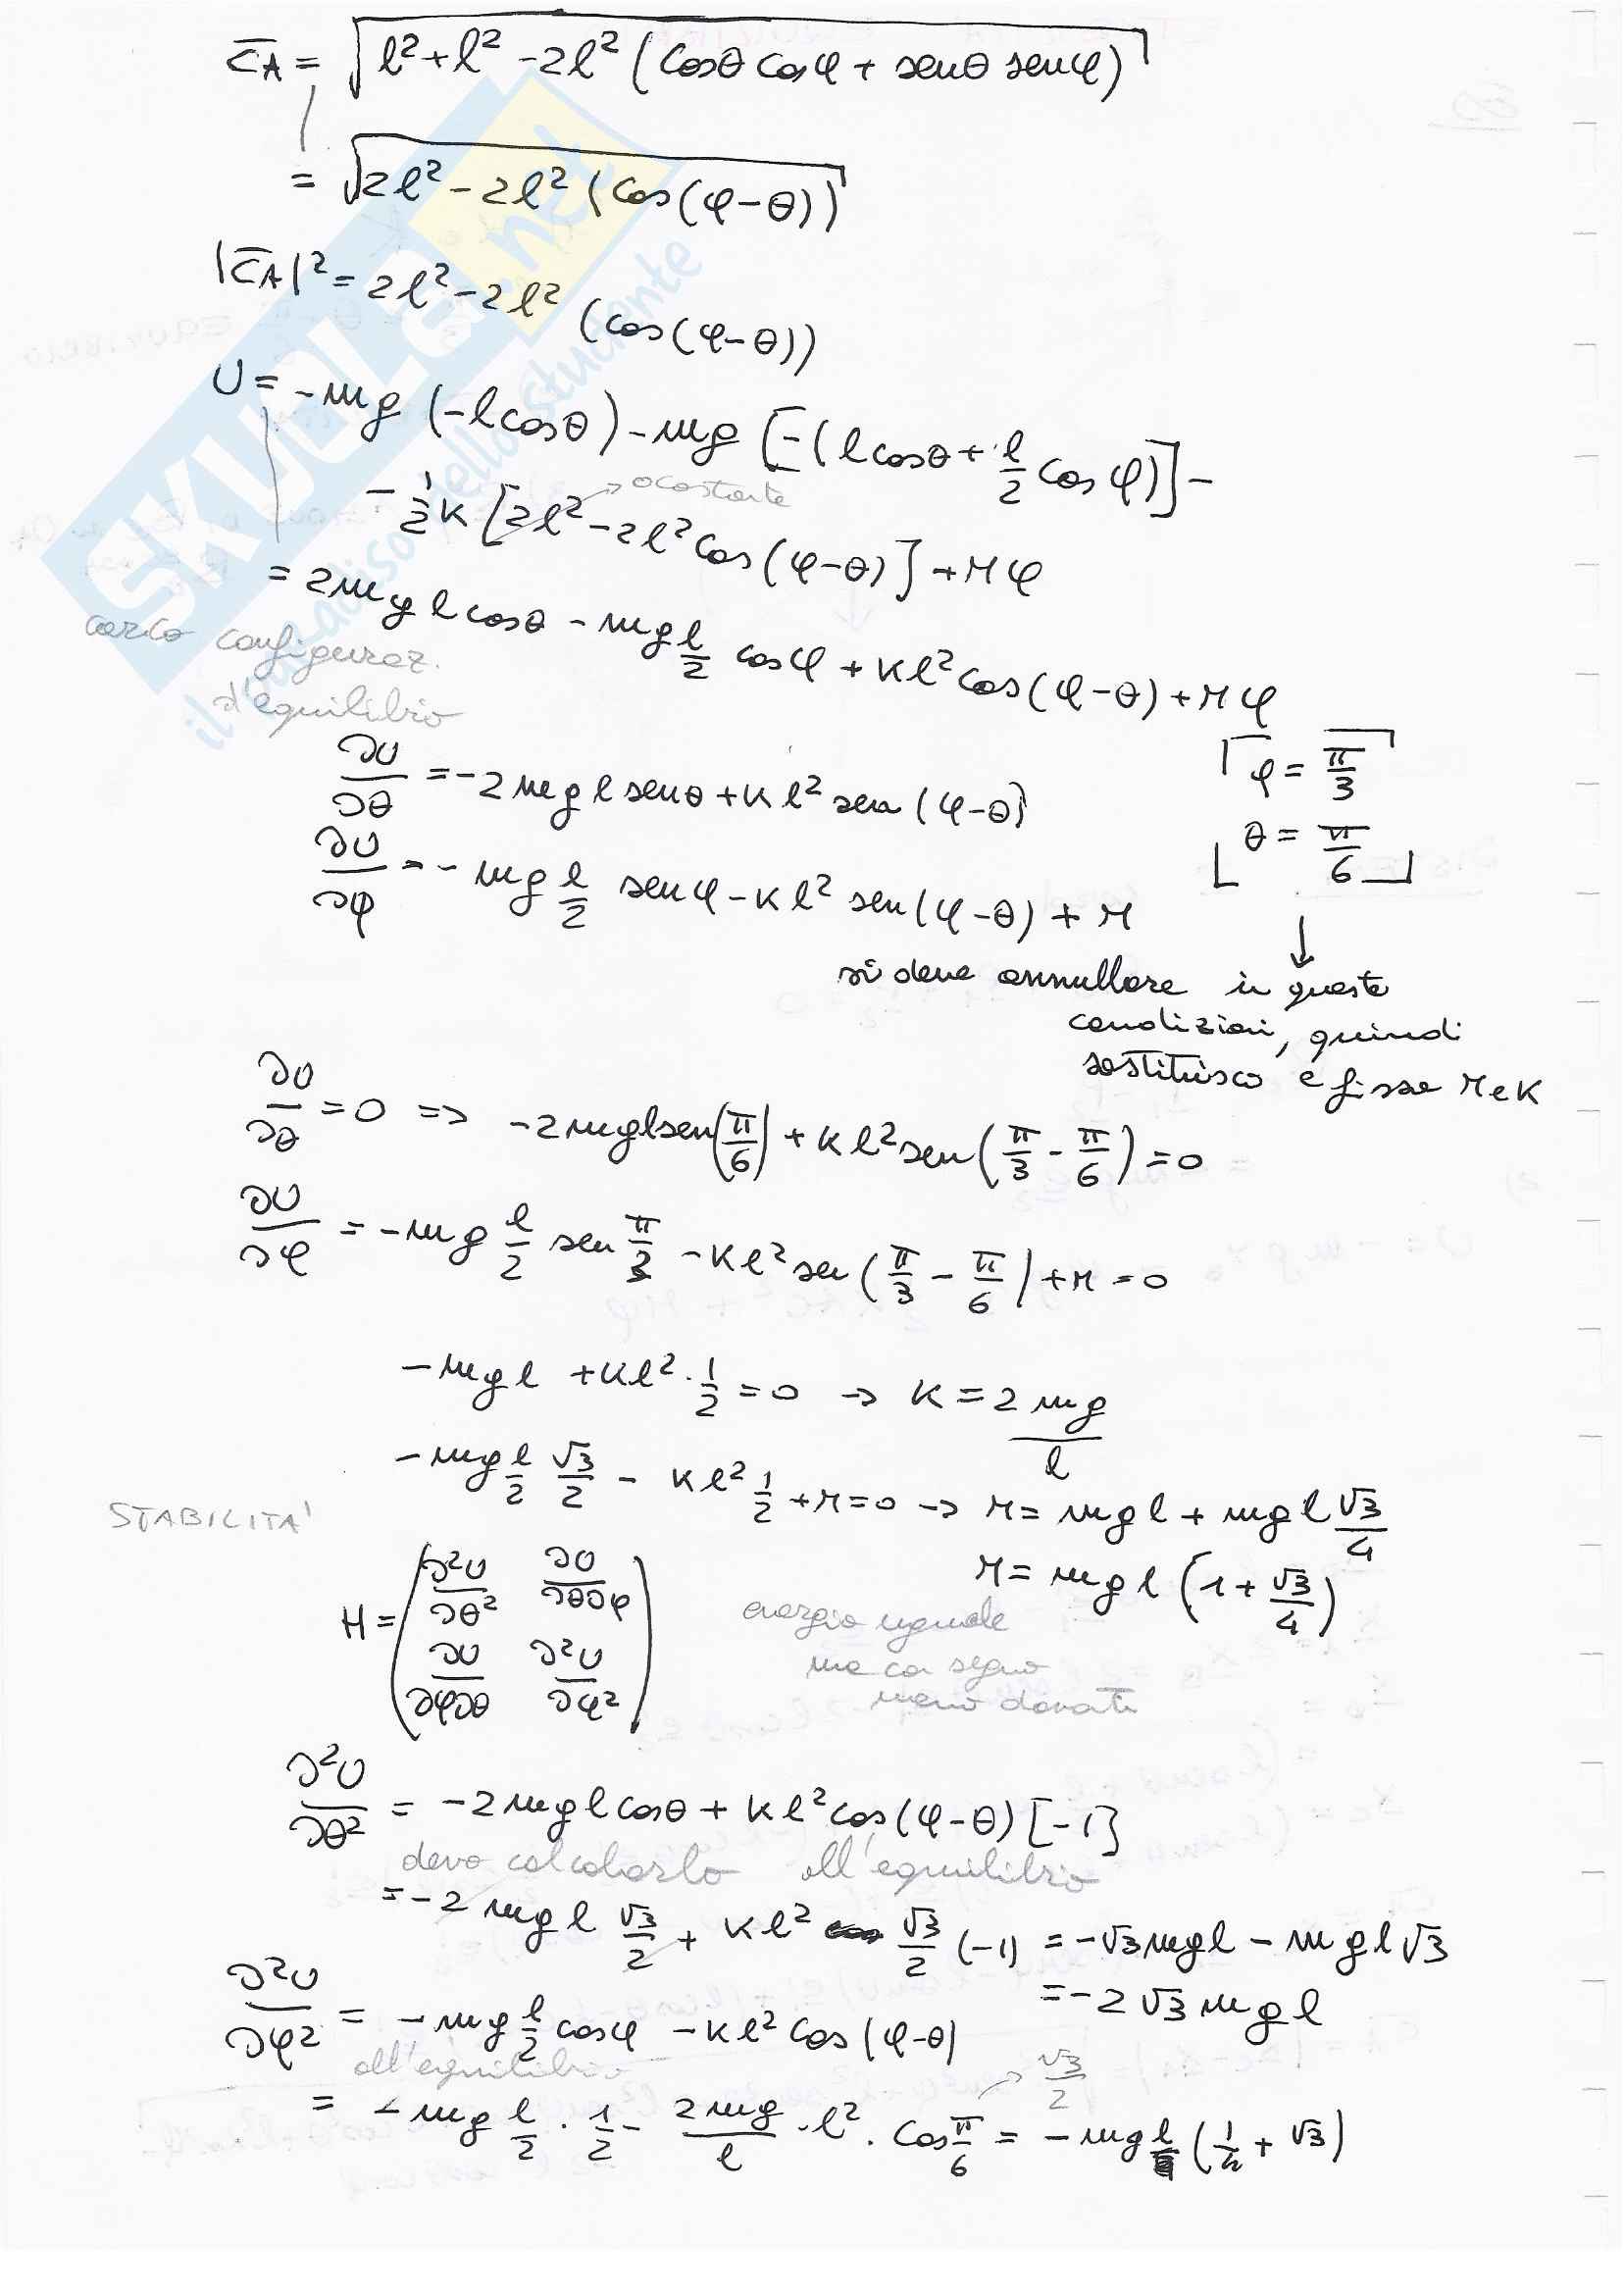 CA = √(l² + l² - 2l² (cosθ cosφ + senθ senφ))
= √(2l² - 2l² (cos(φ-θ)))
|CA|² = 2l² - 2l² (cos(φ-θ))
U = -mg (-l cosθ) - mg [-(l cosθ + l/2 cosφ)] -
- 1/2 K [2l² - 2l² cos(φ-θ)] + Mφ
→ costante
= 2mgl cosθ - mg l/2 cosφ + Kl² cos(φ-θ) + Mφ
cerco configuraz.
d'equilibrio
∂U/∂θ = -2mgl senθ + Kl² sen(φ-θ)
φ = π/3
θ = π/6
∂U/∂φ = - mg l/2 senφ - Kl² sen(φ-θ) + M
↓
si deve annullare in queste
condizioni, quindi
sostituisco e fisso M e K
∂U/∂θ = 0 => -2mgl sen(π/6) + Kl² sen(π/3 - π/6) = 0
∂U/∂φ = -mg l/2 sen π/3 - Kl² sen(π/3 - π/6) + M = 0
-mgl + Kl² · 1/2 = 0 → K = 2mg/l
-mg l/2 √3/2 - Kl² 1/2 + M = 0 → M = mgl + mgl √3/4
STABILITA'
M = mgl (1 + √3/4)
H = (∂²U/∂θ² ∂U/∂θ∂φ
∂U/∂φ∂θ ∂²U/∂φ²)
energia uguale
ma con segno
meno davanti
∂²U/∂θ² = -2mgl cosθ + Kl² cos(φ-θ) [-1]
devo calcolarlo all'equilibrio
= -2 mgl √3/2 + Kl² √3/2 (-1) = -√3mgl - mgl√3
= -2√3 mgl
∂²U/∂φ² = -mg l/2 cosφ - Kl² cos(φ-θ)
all'equilibrio
→ √3/2
= -mg l/2 · 1/2 - 2mg/l · l² · cos π/6 = -mgl (1/4 + √3)
SKUOLA.net
il paradiso dello studente